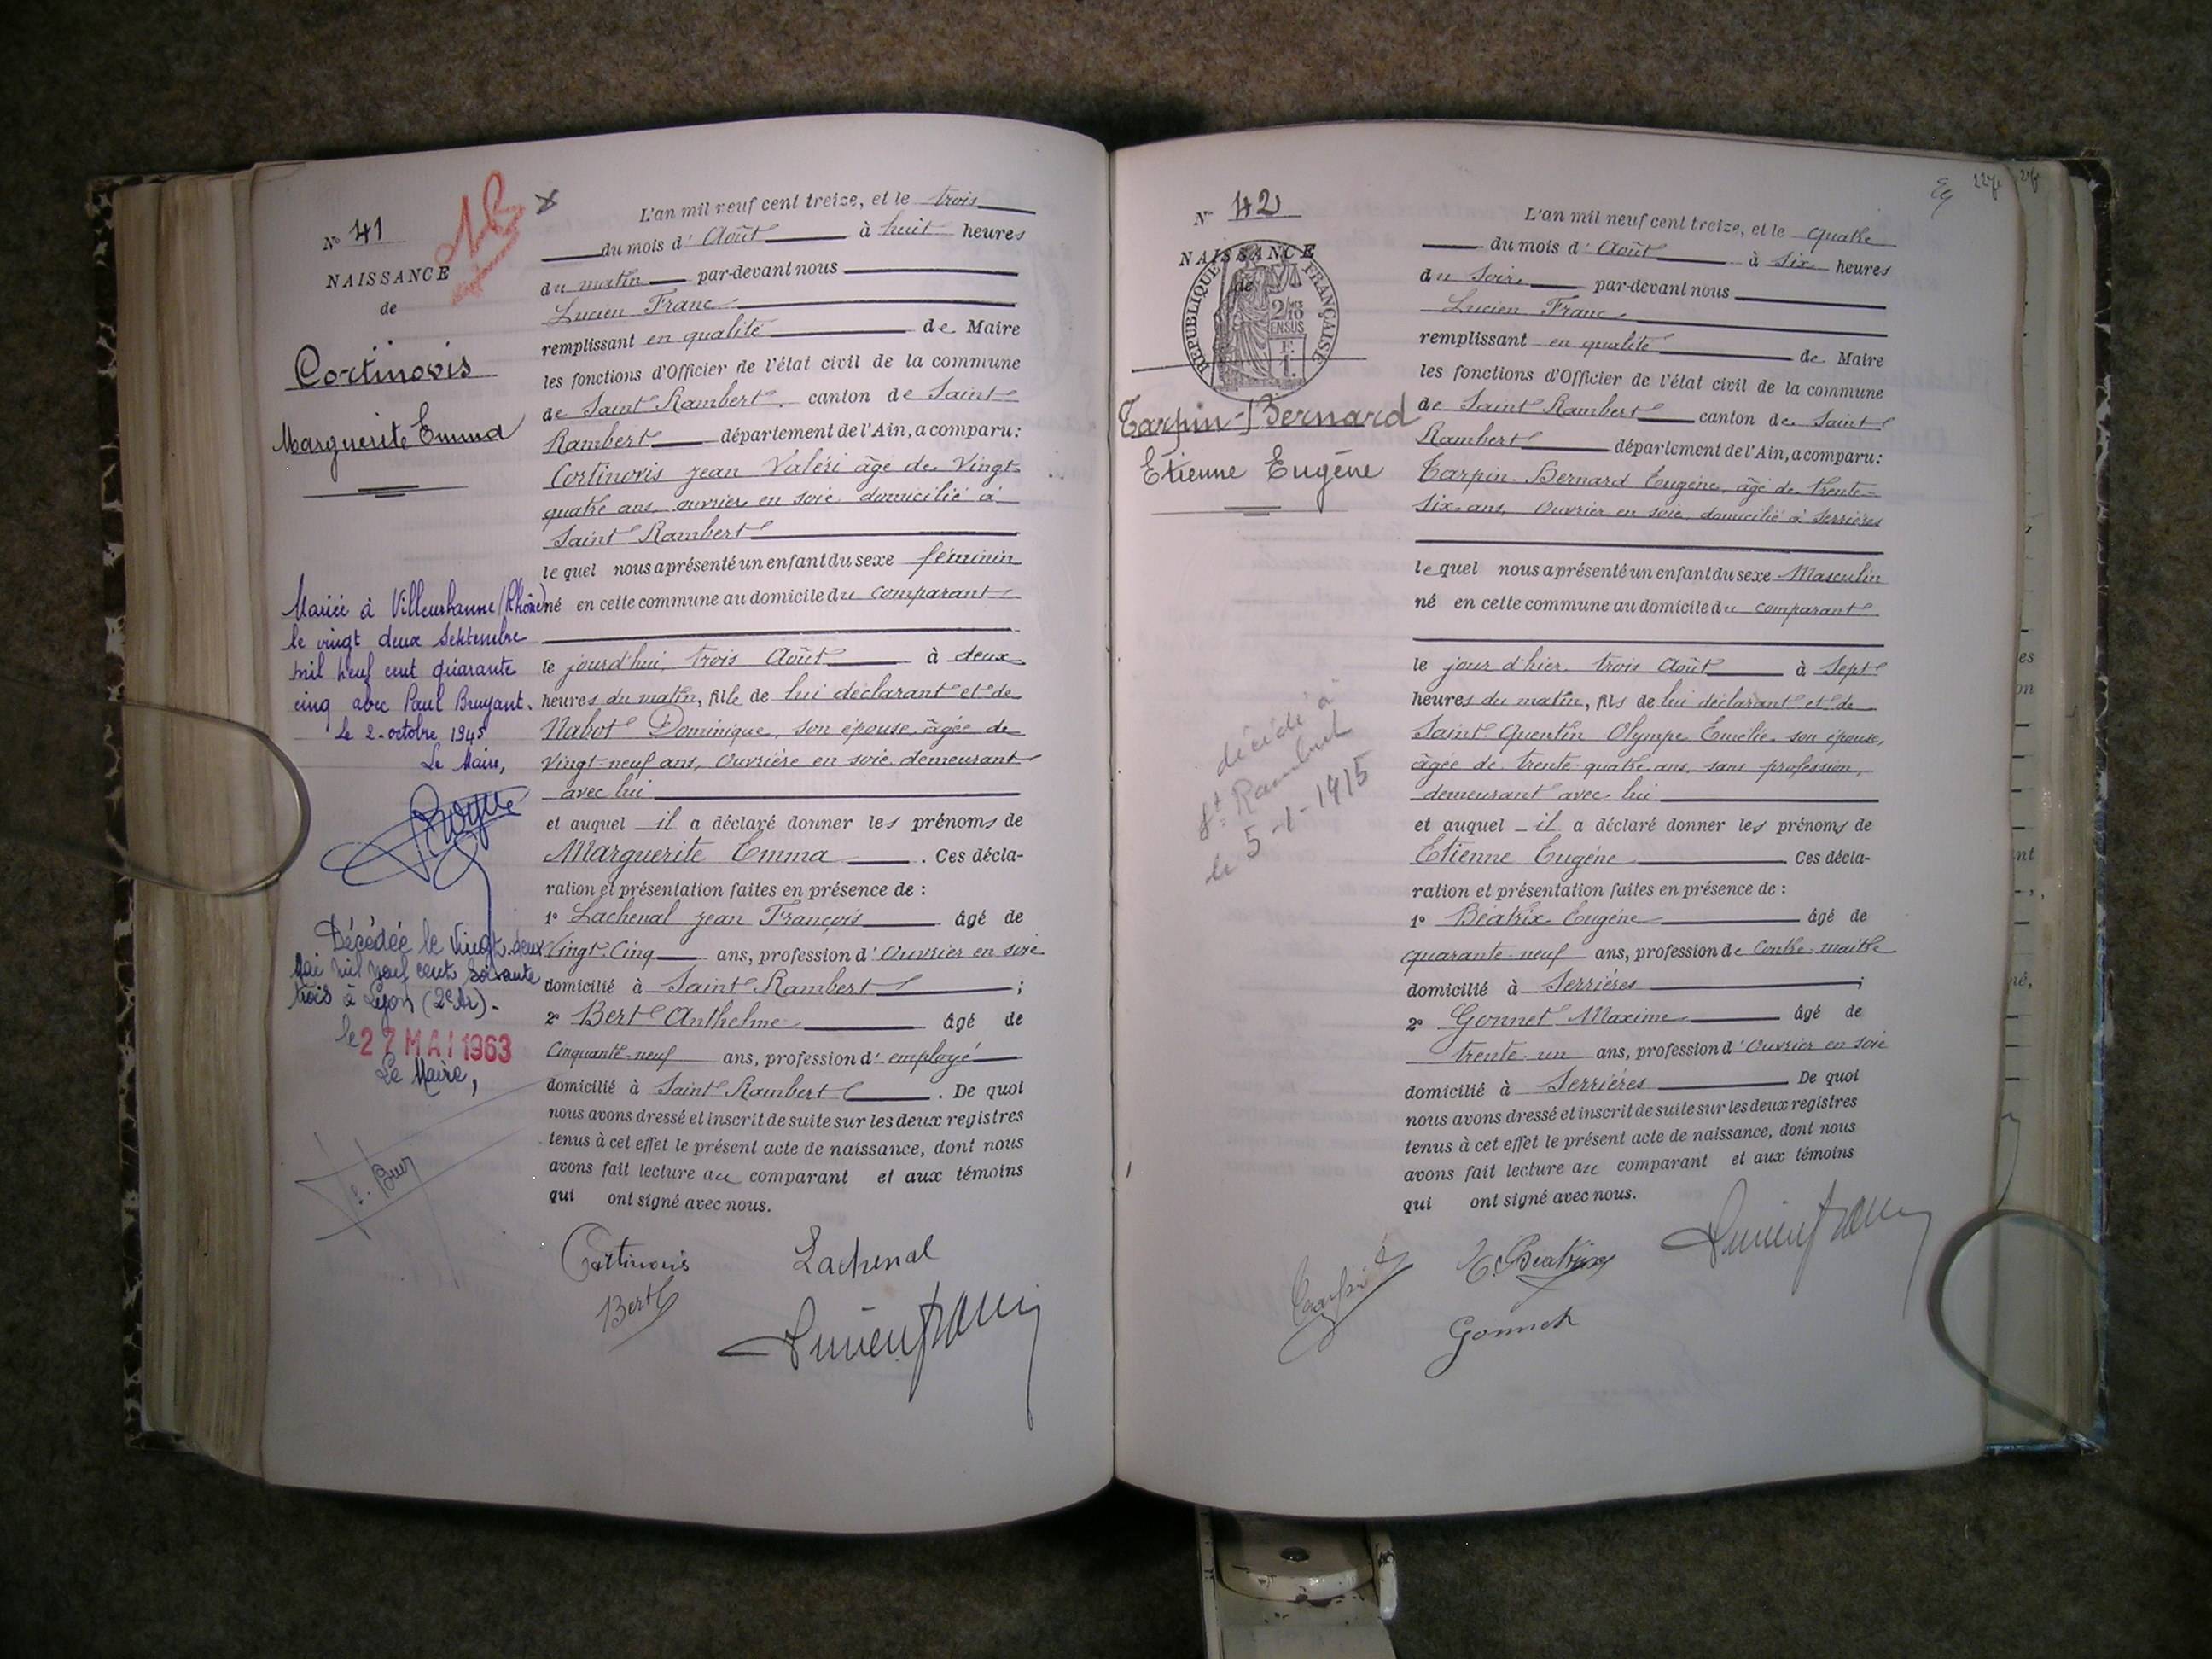 N° 41
NAISSANCE
de
Cortinovis
Marguerite Emma
Mariée à Villeurbanne (Rhône)
le vingt deux Septembre
mil neuf cent quarante
cinq avec Paul Bruyant.
Le 2 octobre 1945
Le Maire,
Décédée le vingt-deux
Mai mil neuf cent soixante
trois à Lyon (2e Ar) -
le 27 MAI 1963
Le Maire,
L'an mil neuf cent treize, et le trois
du mois d'Août à huit heures
du matin par-devant nous
Lucien Franc
remplissant en qualité de Maire
les fonctions d'Officier de l'état civil de la commune
de Saint Rambert, canton de Saint
Rambert département de l'Ain, a comparu:
Cortinovis Jean Valéri âgé de Vingt
quatre ans, ouvrier en soie domicilié à
Saint Rambert
le quel nous a présenté un enfant du sexe féminin
né en cette commune au domicile du comparant
le jourd'hui, trois Août à deux
heures du matin, fille de lui déclarant et de
Nabot Dominique, son épouse, âgée de
Vingt-neuf ans, Ouvrière en soie demeurant
avec lui
et auquel il a déclaré donner les prénoms de
Marguerite Emma. Ces décla-
ration et présentation faites en présence de :
1° Lachenal Jean François âgé de
Vingt Cinq ans, profession d'Ouvrier en soie
domicilié à Saint Rambert ;
2° Bert Anthelme âgé de
Cinquante-neuf ans, profession d'employé
domicilié à Saint Rambert. De quoi
nous avons dressé et inscrit de suite sur les deux registres
tenus à cet effet le présent acte de naissance, dont nous
avons fait lecture au comparant et aux témoins
qui ont signé avec nous.
Cortinovis Lachenal
Bert
Lucien Franc
N° 42
NAISSANCE
de
RÉPUBLIQUE FRANÇAISE
2/10 EN SUS
Tarpin-Bernard
Etienne Eugène
décédé à
St Rambert
le 5-1-1915
L'an mil neuf cent treize, et le quatre
du mois d'Août à Six heures
du Soir par-devant nous
Lucien Franc
remplissant en qualité de Maire
les fonctions d'Officier de l'état civil de la commune
de Saint Rambert canton de Saint
Rambert département de l'Ain, a comparu:
Tarpin-Bernard Eugène, âgé de Trente-
Six ans, Ouvrier en soie, domicilié à Serrières
le quel nous a présenté un enfant du sexe Masculin
né en cette commune au domicile du comparant
le jour d'hier, trois Août à Sept
heures du matin, fils de lui déclarant et de
Saint Quentin Olympe Emélie son épouse,
âgée de trente-quatre ans, sans profession,
demeurant avec lui
et auquel il a déclaré donner les prénoms de
Etienne Eugène. Ces décla-
ration et présentation faites en présence de :
1° Béatrix Eugène âgé de
quarante-neuf ans, profession de Contre-maître
domicilié à Serrières ;
2° Gonnet Maxime âgé de
trente-un ans, profession d'Ouvrier en soie
domicilié à Serrières De quoi
nous avons dressé et inscrit de suite sur les deux registres
tenus à cet effet le présent acte de naissance, dont nous
avons fait lecture au comparant et aux témoins
qui ont signé avec nous.
Tarpin E. Beatrix Lucien Franc
Gonnet